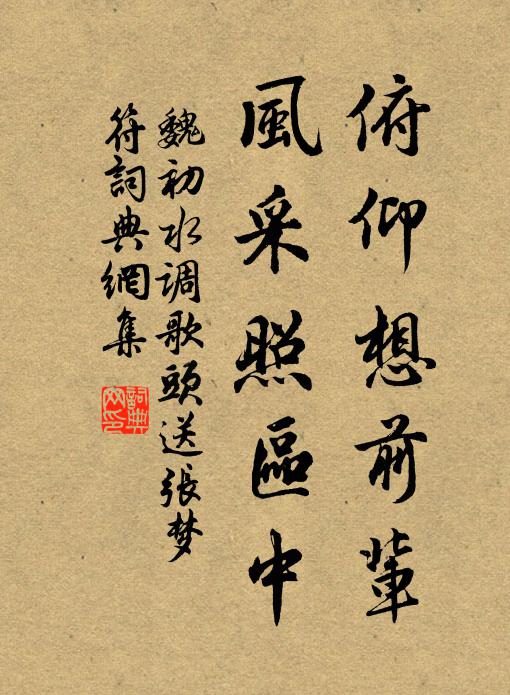 俯仰想前輩
風采照區中
魏初水调歌頭送張梦
符詞典網集
詞典